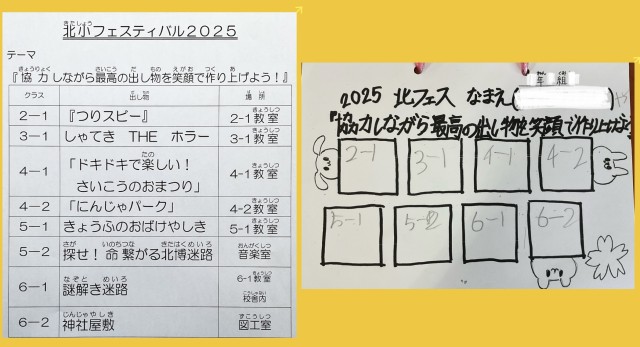 北小フェスティバル2025
テーマ
『協力しながら最高の出し物を笑顔で作り上げよう!』
クラス 出し物 場所
2-1 『つりスピー』 2-1教室
3-1 しゃてき THE ホラー 3-1教室
4-1 「ドキドキで楽しい! さいこうのおまつり」 4-1教室
4-2 「にんじゃパーク」 4-2教室
5-1 きょうふのおばけやしき 5-1教室
5-2 探せ!命繋がる北博迷路 音楽室
6-1 謎解き迷路 6-1教室 校舎内
6-2 神社屋敷 図工室
年 組
2025 北フェス なまえ(
『協力しながら最高の出し物を笑顔で作り上げよう
2-1 3-1 4-1 4-2
5-1 5-2 6-1 6-2